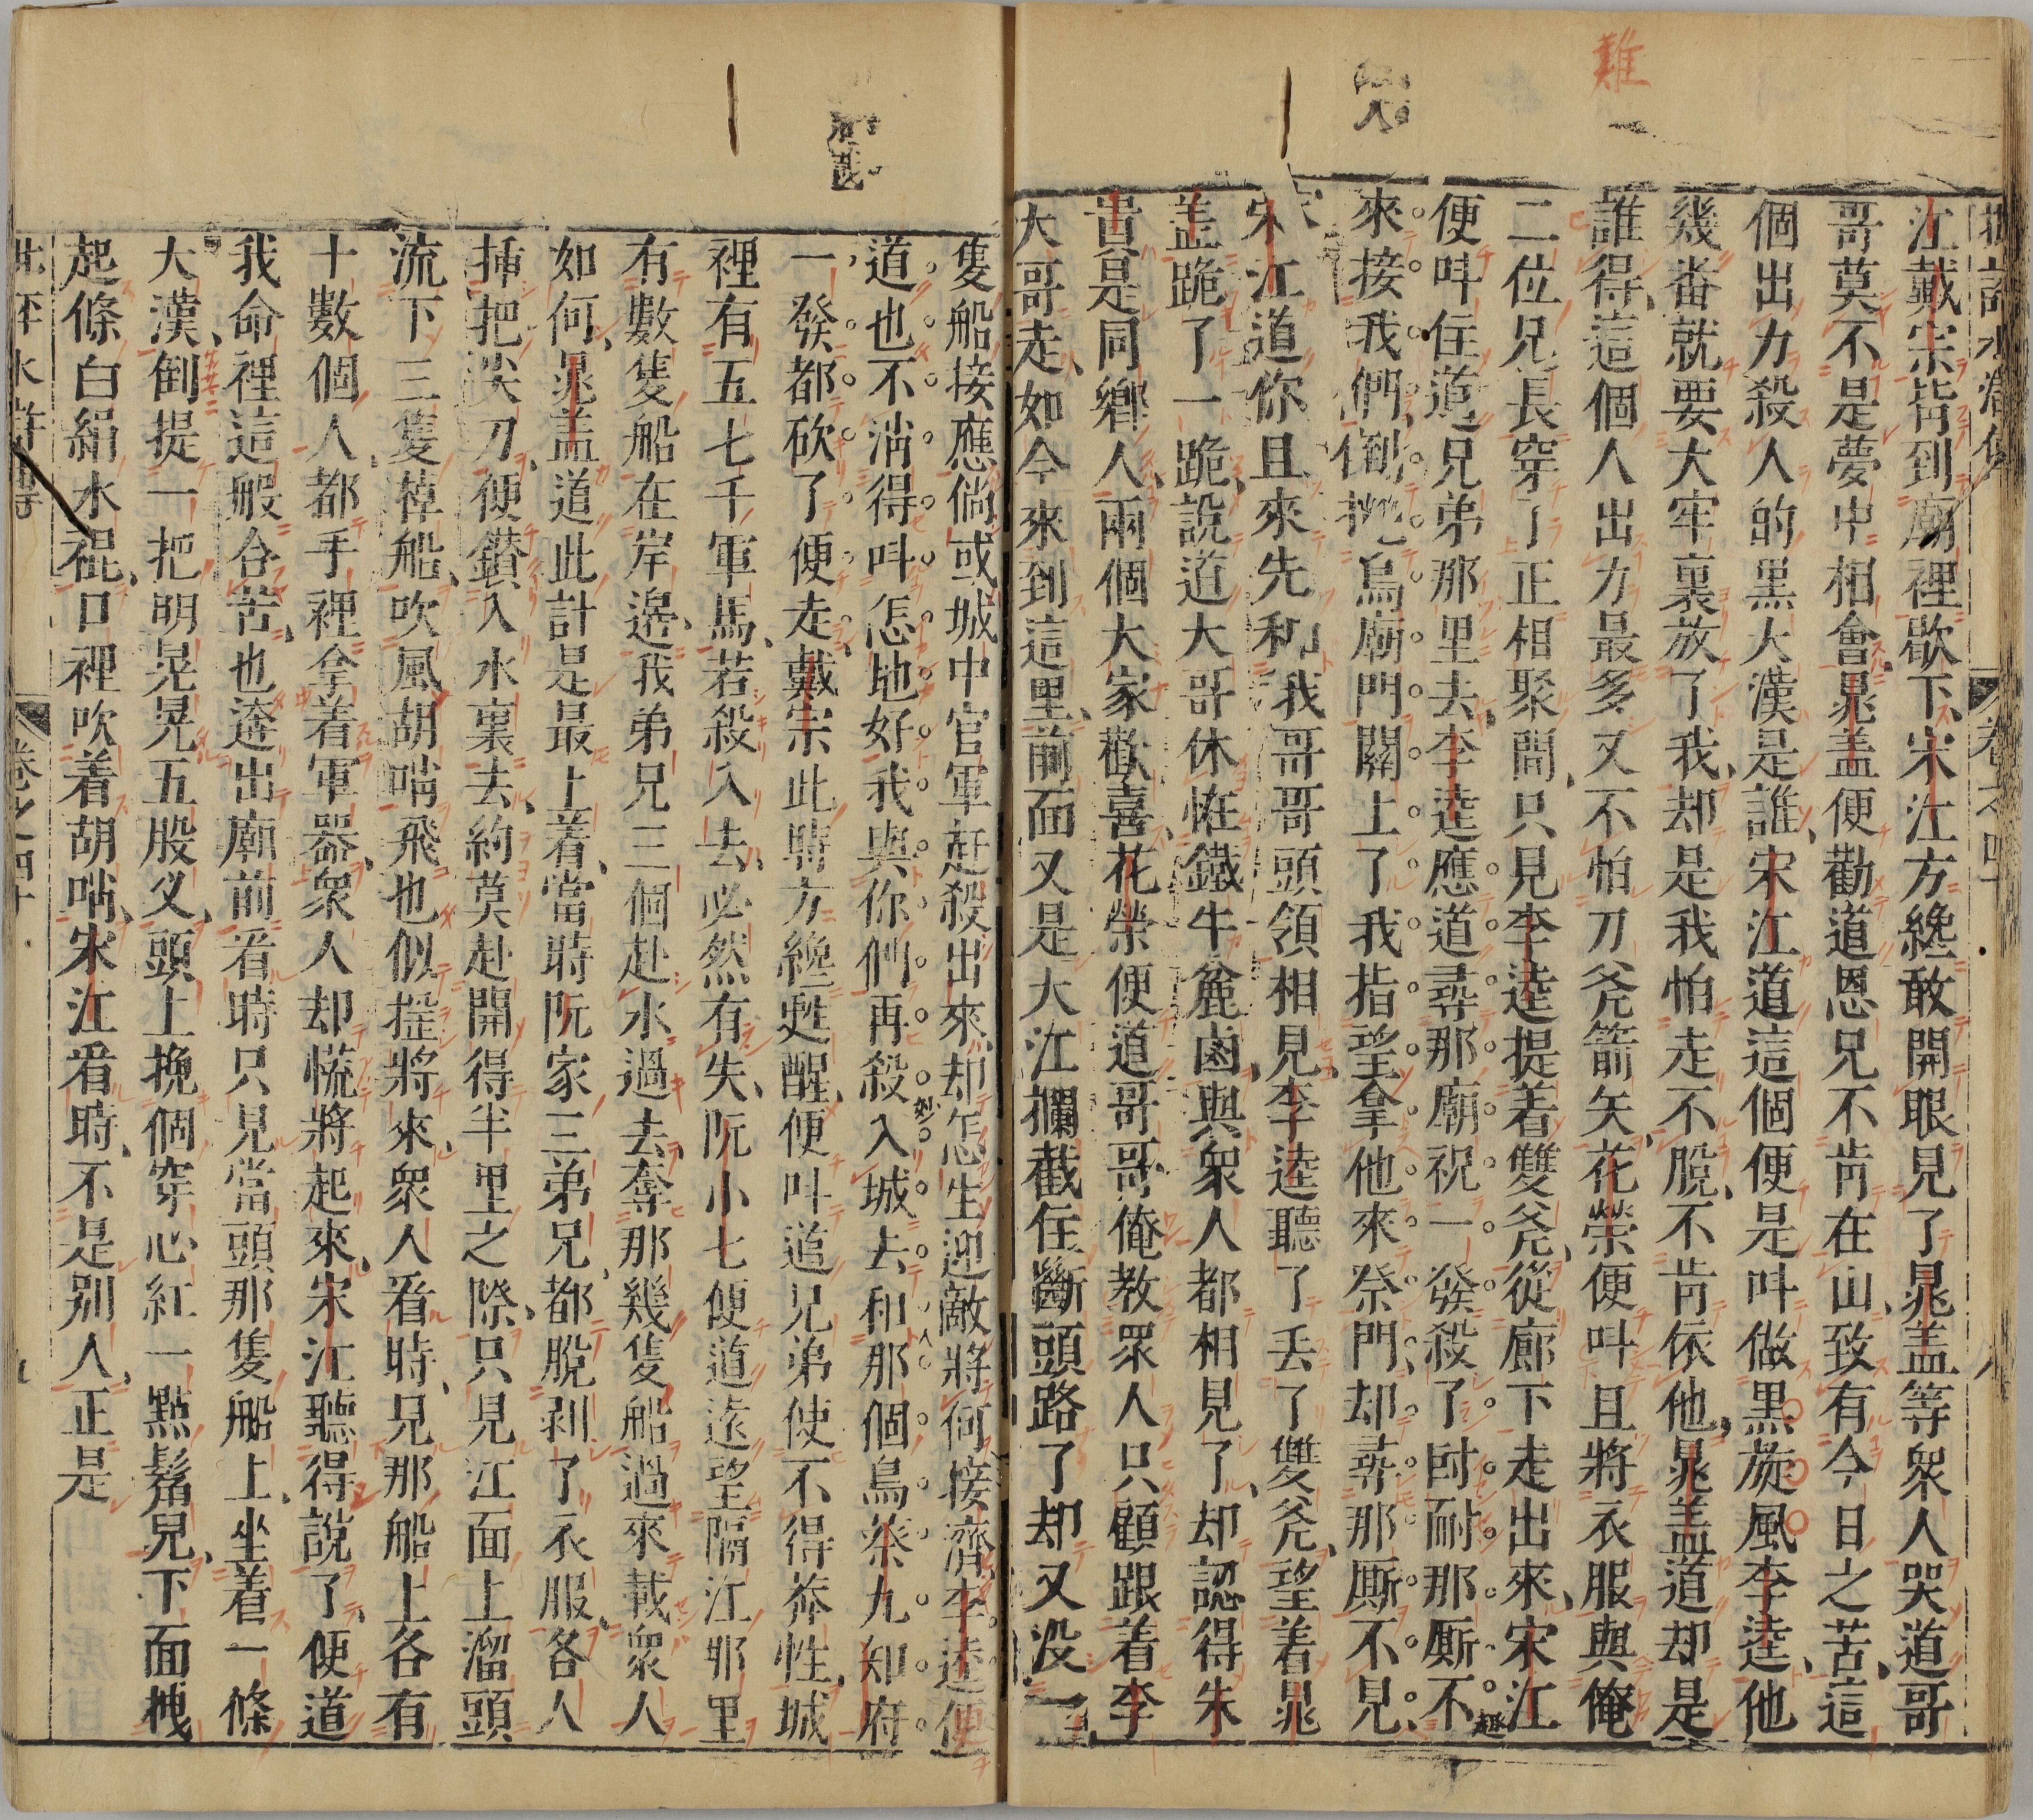 難
江戴宗皆到廟裡歇下宋江方纔敢開眼見了晁盖等衆人哭道哥
哥莫不是夢中相會晁盖便勸道恩兄不肯在山致有今日之苦這
個出力殺人的黒大漢是誰宋江道這個便是呌做黒旋風李逵他
幾番就要大牢裏放了我却是我怕走不脫不肯依他晁盖道却是
誰得這個人出力最多又不怕刀斧箭矢花榮便呌且將衣服與俺
二位兄長穿了正相聚間只見李逵提着雙斧從廊下走出來宋江
便呌住道兄弟那里去李逵應道尋那廟祝一發殺了叵耐那厮不
來接我們倒把鳥廟門關上了我指望拿他來祭門却尋那厮不見
宋江道你且來先和我哥哥頭領相見李逵聽了丟了雙斧望着晁
盖跪了一跪說道大哥休恠鐵牛麄鹵與衆人都相見了却認得朱
貴是同鄉人兩個大家歡喜花榮便道哥哥俺教眾人只顧跟着李
大哥走如今來到這里前面又是大江攔截住斷頭路了却又没一
隻船接應倘或城中官軍赶殺出來却怎生迎敵將何接濟李逵便
道也不消得呌怎地好我與你們再殺入城去和那個鳥蔡九知府
一發都砍了便走戴宗此時方纔甦醒便呌道兄弟使不得莾性城
裡有五七千軍馬若殺入去必然有失阮小七便道遠望隔江那里
有數隻船在岸邉我弟兄三個赴水過去奪那幾隻船過來載衆人
如何晁盖道此計是最上着當時阮家三弟兄都脫剥了衣服各人
插把尖刀便鑽入水裏去約莫赴開得半里之際只見江面上溜頭
流下三隻棹船吹風胡哨飛也似揺將來衆人看時見那船上各有
十數個人都手裡拿着軍器衆人却慌將起來宋江聽得說了便道
我命裡這般合苦也逩出廟前看時只見當頭那隻船上坐着一條
大漢倒提一把明晃晃五股叉頭上挽個穿心紅一點鬅兒下面拽
起條白絹水裩口裡吹着胡哨宋江看時不是别人正是